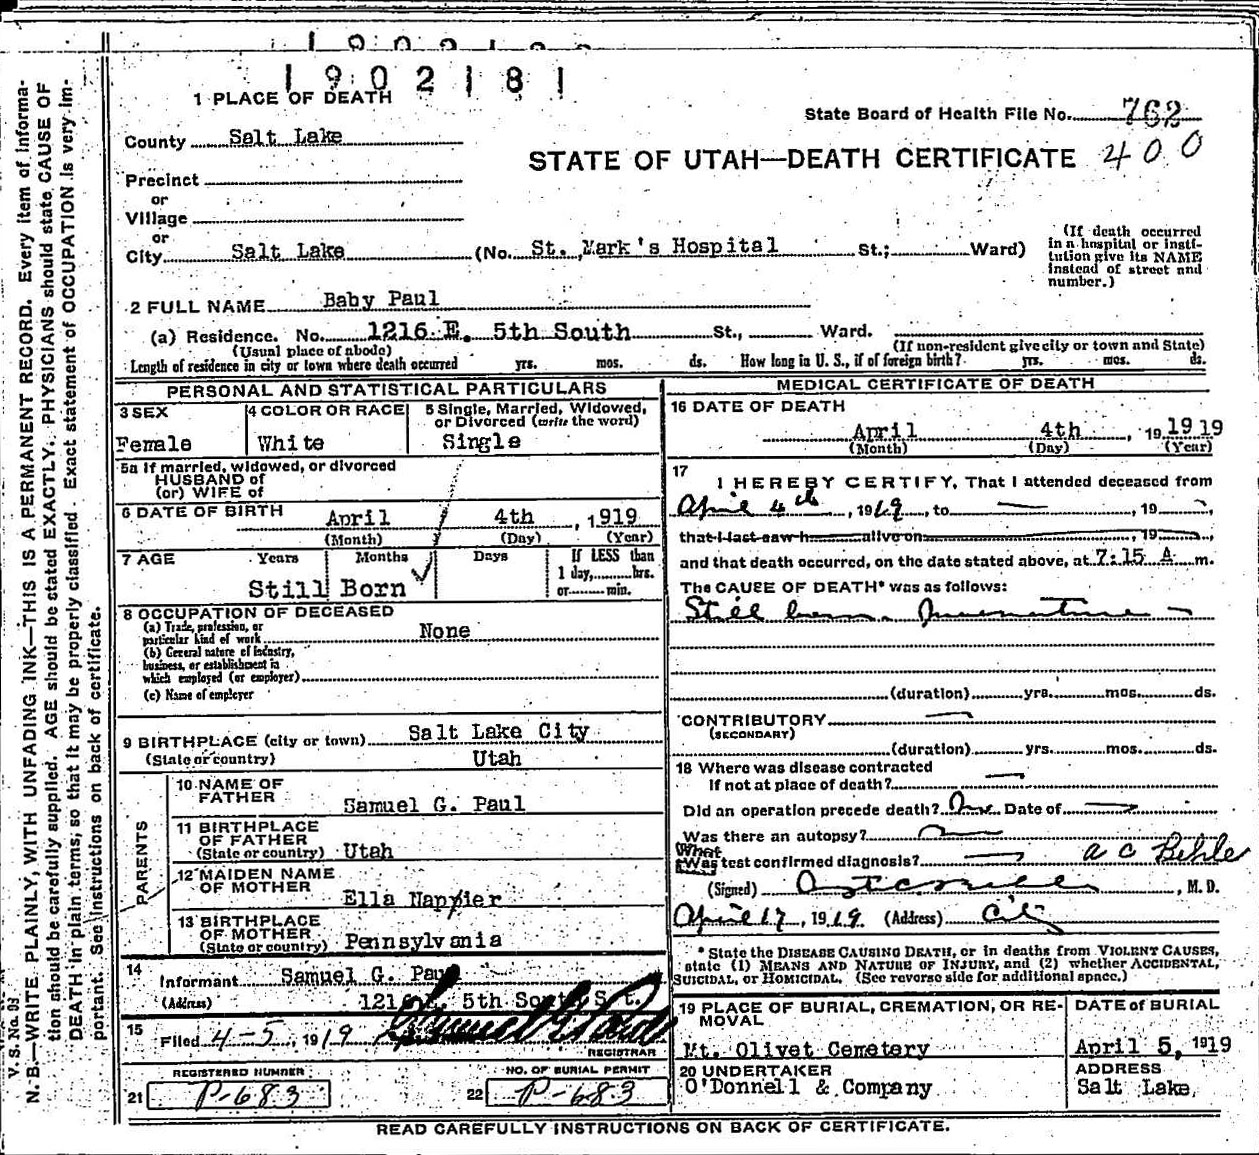 1902181
1 PLACE OF DEATH
State Board of Health File No. 762
County Salt Lake
STATE OF UTAH—DEATH CERTIFICATE 400
Precinct
or
Village
or
City Salt Lake (No. St. Mark's Hospital St.; Ward)
(If death occurred in a hospital or insti-
tution give its NAME
instead of street and
number.)
2 FULL NAME Baby Paul
(a) Residence. No. 1216 E. 5th South St., Ward.
(Usual place of abode) (If non-resident give city or town and State)
Length of residence in city or town where death occurred yrs. mos. ds. How long in U. S., if of foreign birth? yrs. mos. ds.
PERSONAL AND STATISTICAL PARTICULARS
3 SEX
Female
4 COLOR OR RACE
White
5 Single, Married, Widowed,
or Divorced (write the word)
Single
5a If married, widowed, or divorced
HUSBAND of
(or) WIFE of
6 DATE OF BIRTH April 4th, 1919
(Month) (Day) (Year)
7 AGE Years Months Days If LESS than
1 day, hrs.
or min.
Still Born
8 OCCUPATION OF DECEASED
(a) Trade, profession, or
particular kind of work None
(b) General nature of industry,
business, or establishment in
which employed (or employer)
(c) Name of employer
9 BIRTHPLACE (city or town) Salt Lake City
(State or country) Utah
PARENTS
10 NAME OF
FATHER Samuel G. Paul
11 BIRTHPLACE
OF FATHER
(State or country) Utah
12 MAIDEN NAME
OF MOTHER Ella Napier
13 BIRTHPLACE
OF MOTHER
(State or country) Pennsylvania
14 Informant Samuel G. Paul
(Address) 1216 E. 5th South St.
15 Filed 4-5, 1919 Samuel G Paul
REGISTRAR
REGISTERED NUMBER
21 P-683
NO. OF BURIAL PERMIT
22 P-683
MEDICAL CERTIFICATE OF DEATH
16 DATE OF DEATH
April 4th, 19 1919
(Month) (Day) (Year)
17 I HEREBY CERTIFY, That I attended deceased from
April 4th, 1919, to —, 19 —,
that I last saw h— alive on —, 19 —,
and that death occurred, on the date stated above, at 7:15 A m.
The CAUSE OF DEATH* was as follows:
Still born. Premature —
(duration) yrs. mos. ds.
CONTRIBUTORY —
(SECONDARY)
(duration) yrs. mos. ds.
18 Where was disease contracted
if not at place of death? —
Did an operation precede death? No. Date of —
Was there an autopsy?
What
Was test confirmed diagnosis? — A C Behle
(Signed) , M. D.
April 17, 1919 (Address) City
* State the DISEASE CAUSING DEATH, or in deaths from VIOLENT CAUSES,
state (1) MEANS AND NATURE OF INJURY, and (2) whether ACCIDENTAL,
SUICIDAL, or HOMICIDAL. (See reverse side for additional space.)
19 PLACE OF BURIAL, CREMATION, OR RE-
MOVAL
Mt. Olivet Cemetery
DATE of BURIAL
April 5, 1919
20 UNDERTAKER
O'Donnell & Company
ADDRESS
Salt Lake,
READ CAREFULLY INSTRUCTIONS ON BACK OF CERTIFICATE.
V. S. No.
N. B.—WRITE PLAINLY, WITH UNFADING INK—THIS IS A PERMANENT RECORD. Every item of informa-
tion should be carefully supplied. AGE should be stated EXACTLY. PHYSICIANS should state CAUSE OF
DEATH in plain terms, so that it may be properly classified. Exact statement of OCCUPATION is very im-
portant. See instructions on back of certificate.